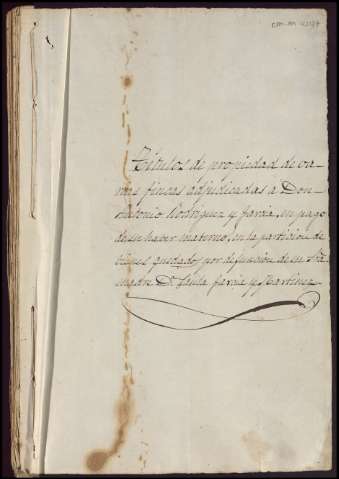 Títulos de propiedad de va-
rias fincas adjudicadas a Don
Antonio Rodriguez y Farza, en pago
de su haber materno, en la particion de
bienes quedados por defuncion de su Sra.
madre Dª. Farza y Martinez